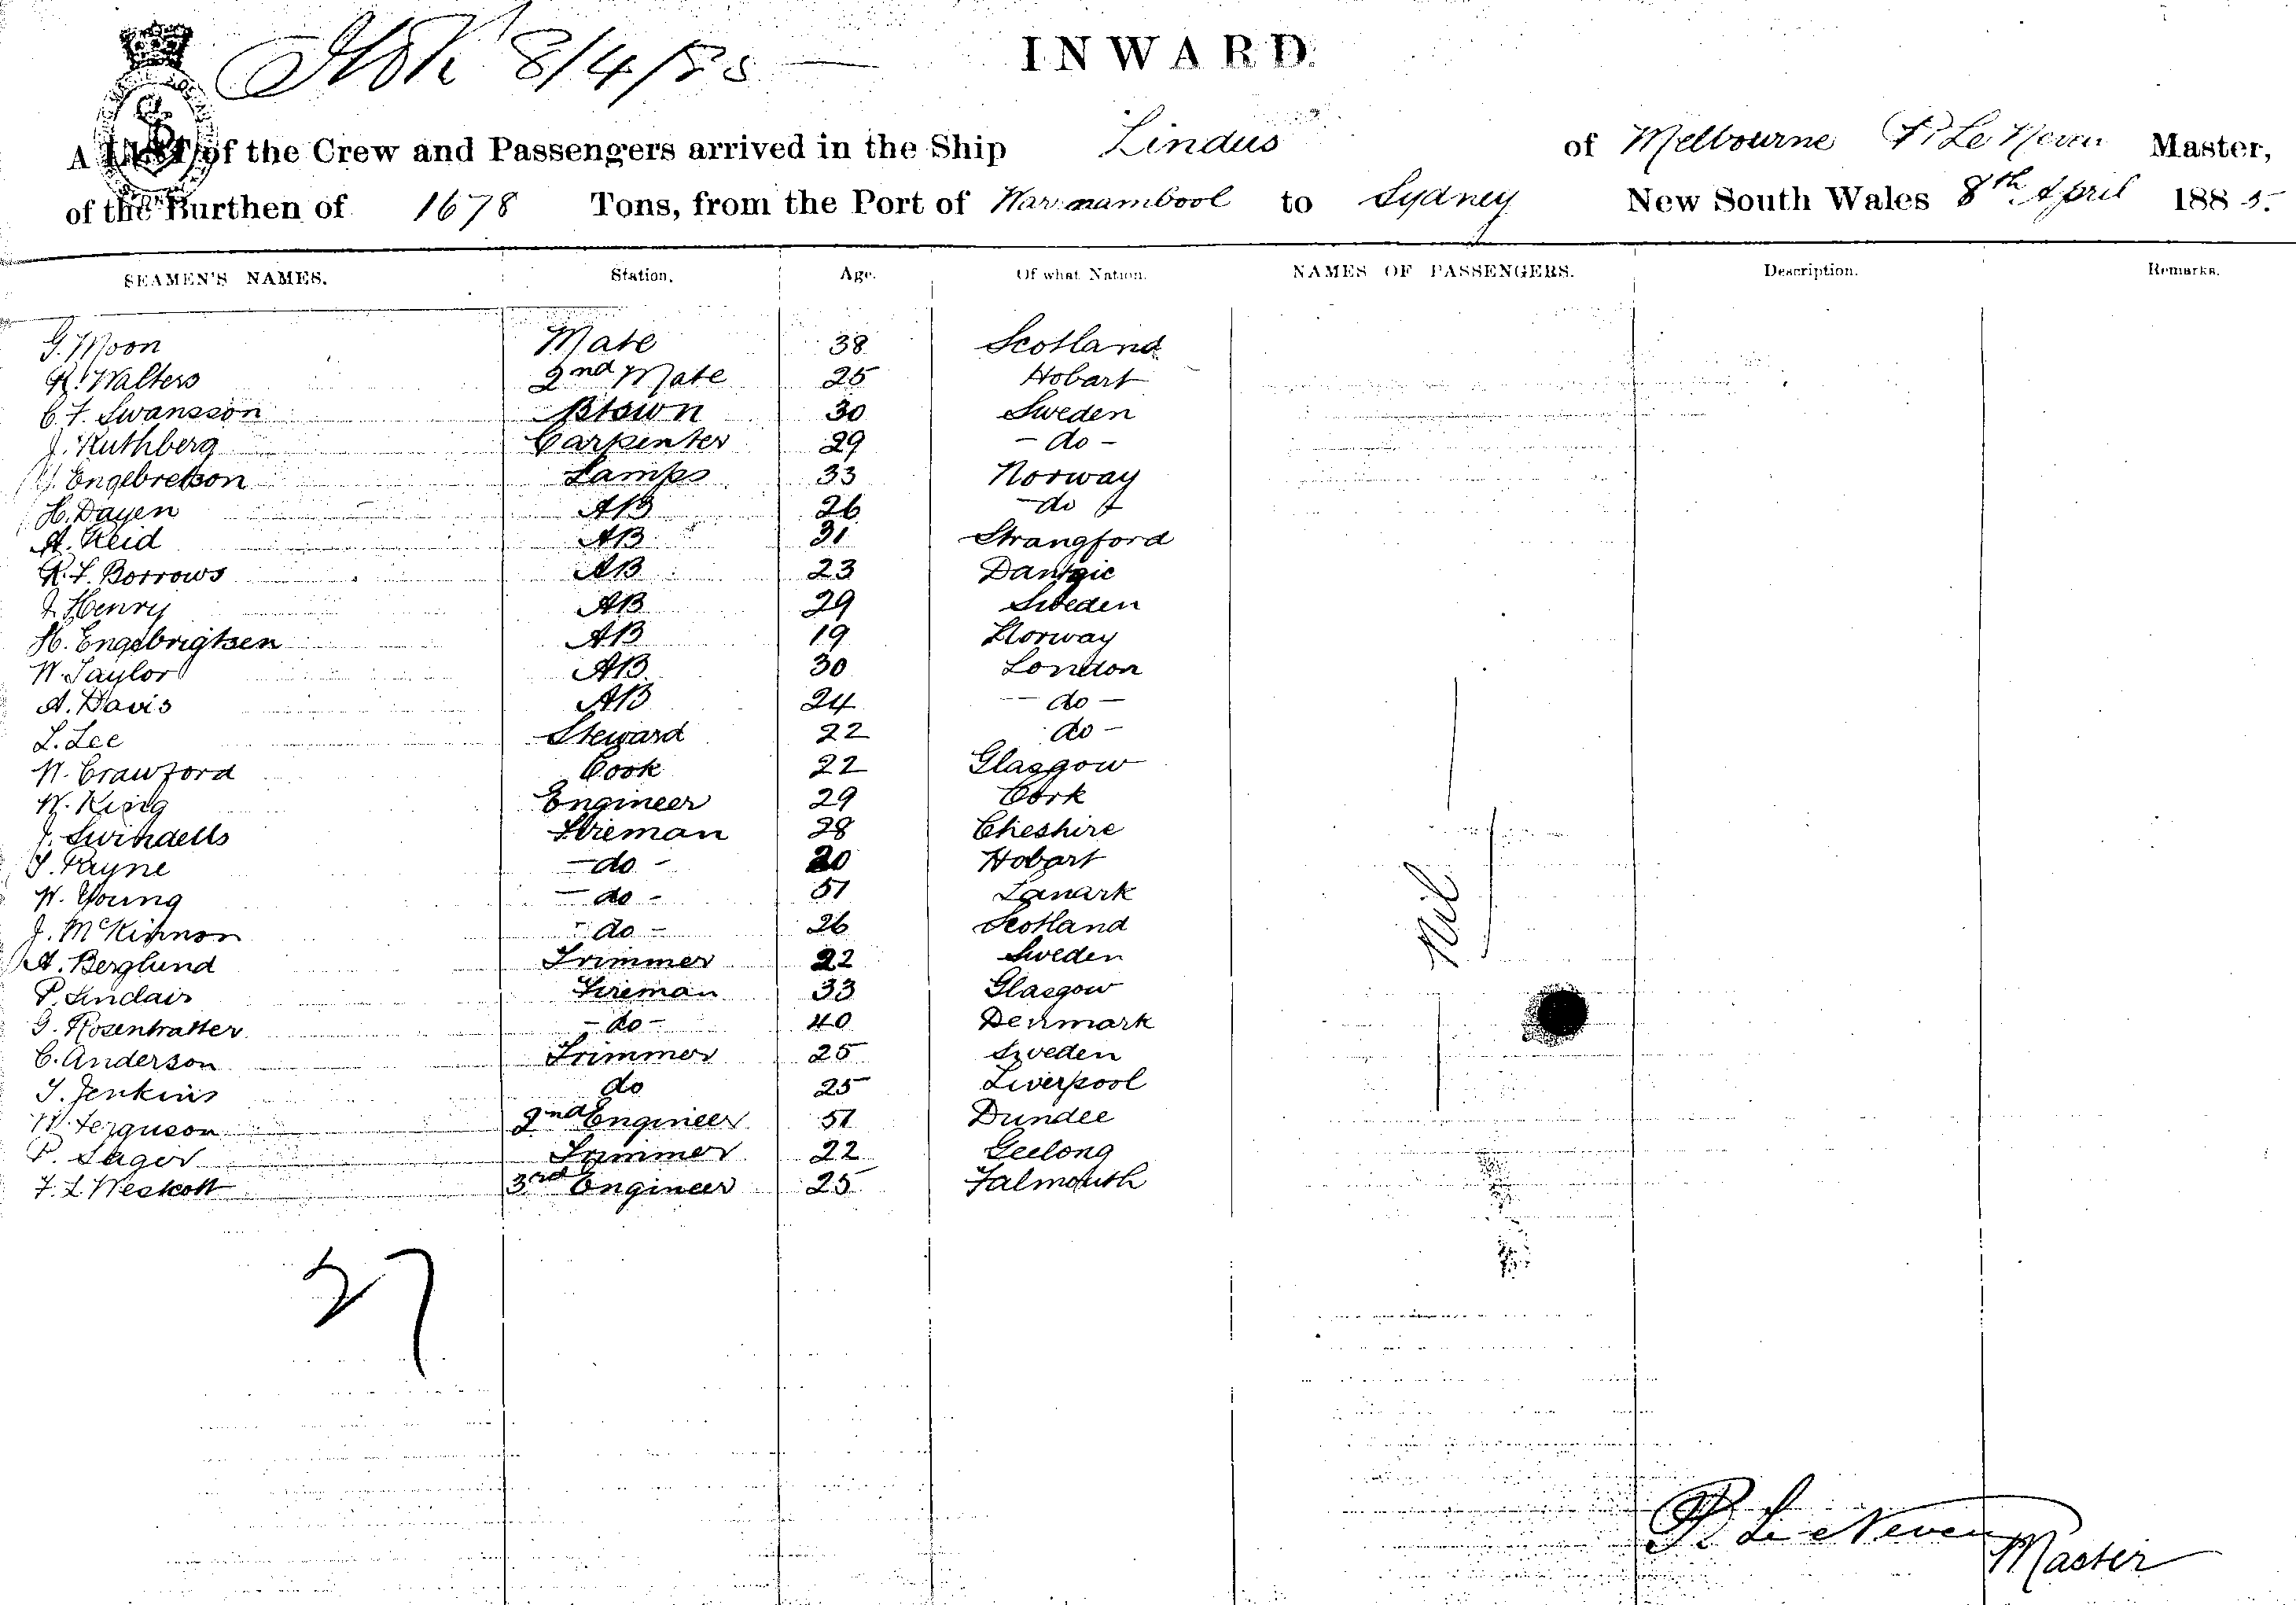 8/4/85
INWARD.
A LIST of the Crew and Passengers arrived in the Ship Lindus of Melbourne P Le Neven Master,
of the Burthen of 1678 Tons, from the Port of Warrnambool to Sydney New South Wales 8th April 1885.
SEAMEN'S NAMES. Station. Age. Of what Nation. NAMES OF PASSENGERS. Description. Remarks.
G. Moon Mate 38 Scotland
R. Walters 2nd Mate 25 Hobart
C. F. Swansson Btswn 30 Sweden
J. Ruthberg Carpenter 29 - do -
Engebretson Lamps 33 Norway
H. Dayen AB 26 - do -
A. Reid AB 31 Strangford
R. F. Borrows AB 23 Dantzic
J. Henry AB 29 Sweden
H. Engebrigtsen AB 19 Norway
W. Taylor AB 30 London
A. Davis AB 24 - do -
L. Lee Steward 22 do -
W. Crawford Cook 22 Glasgow
W. King Engineer 29 Cork
J. Swindells Fireman 28 Cheshire
T. Payne - do - 20 Hobart
W. Young - do - 51 Lanark
J. McKinnon - do - 26 Scotland
A. Berglund Trimmer 22 Sweden
P. Sinclair Fireman 33 Glasgow
G. Rosentratter - do - 40 Denmark
C. Anderson Trimmer 25 Sweden
T. Jenkins do 25 Liverpool
W. Ferguson 2nd Engineer 51 Dundee
P. Sager Trimmer 22 Geelong
F. L. Weskott 3rd Engineer 25 Falmouth
Nil
27
P. Le Neven
Master